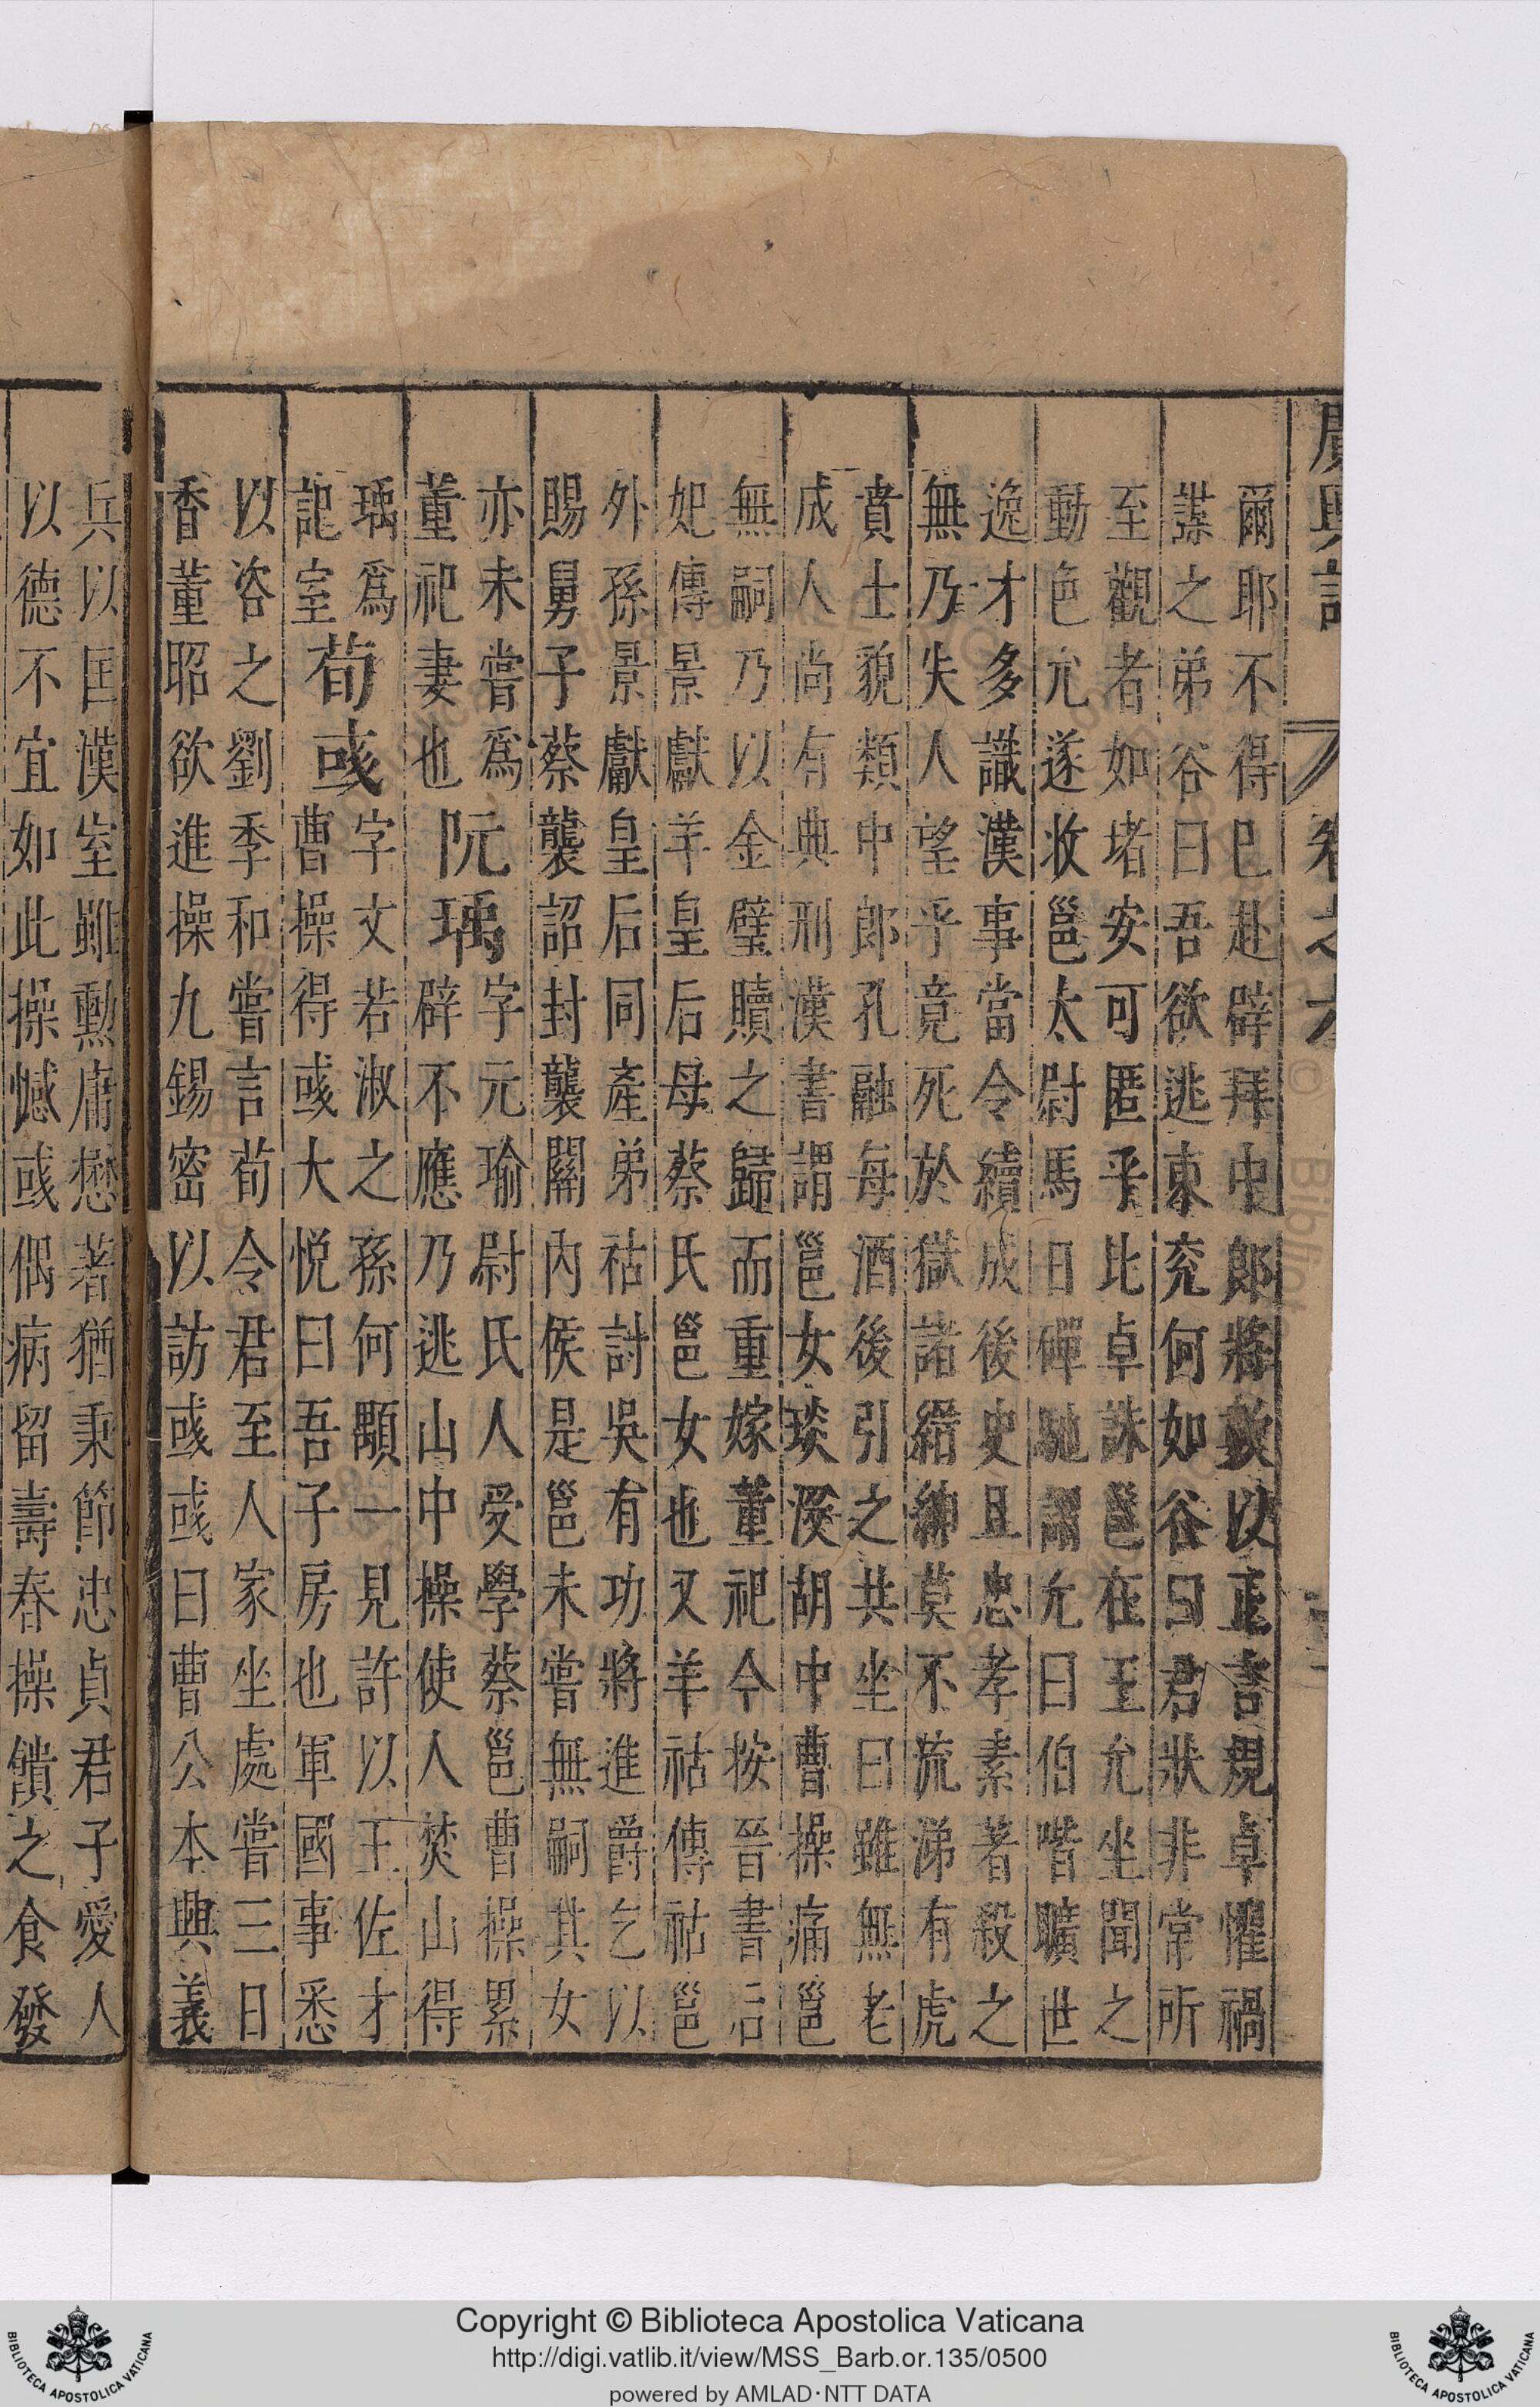 廣輿記 卷之六
爾耶不得已赴辟拜中郎將數以正言規卓懼禍
謀之弟谷曰吾欲逃東兖何如谷曰君狀非常所
至觀者如堵安可匿乎比卓誅邕在王允坐聞之
動色允遂收邕太尉馬日磾馳謂允曰伯喈曠世
逸才多識漢事當令續成後史且忠孝素著殺之
無乃失人望乎竟死於獄諸縉紳莫不流涕有虎
賁士貌類中郎孔融每酒後引之共坐曰雖無老
成人尚有典刑漢書謂邕女琰没胡中曹操痛邕
無嗣乃以金璧贖之歸而重嫁董祀今按晉書后
妃傳景獻羊皇后母蔡氏邕女也又羊祜傳祜邕
外孫景獻皇后同產弟祜討吳有功將進爵乞以
賜舅子蔡襲詔封襲關內侯是邕未嘗無嗣其女
亦未嘗爲
董祀妻也阮瑀字元瑜尉氏人受學蔡邕曹操累
辟不應乃逃山中操使人焚山得
瑀爲
記室荀彧字文若淑之孫何顒一見許以王佐才
曹操得彧大悅曰吾子房也軍國事悉
以咨之劉季和嘗言荀令君至人家坐處嘗三日
香董昭欲進操九錫密以訪彧彧曰曹公本興義
兵以匡漢室雖勲庸懋著猶秉節忠貞君子愛人
以德不宜如此操憾彧偶病留壽春操饋之食發
Copyright © Biblioteca Apostolica Vaticana
http://digi.vatlib.it/view/MSS_Barb.or.135/0500
powered by AMLAD·NTT DATA
BIBLIOTECA APOSTOLICA VATICANA
BIBLIOTECA APOSTOLICA VATICANA